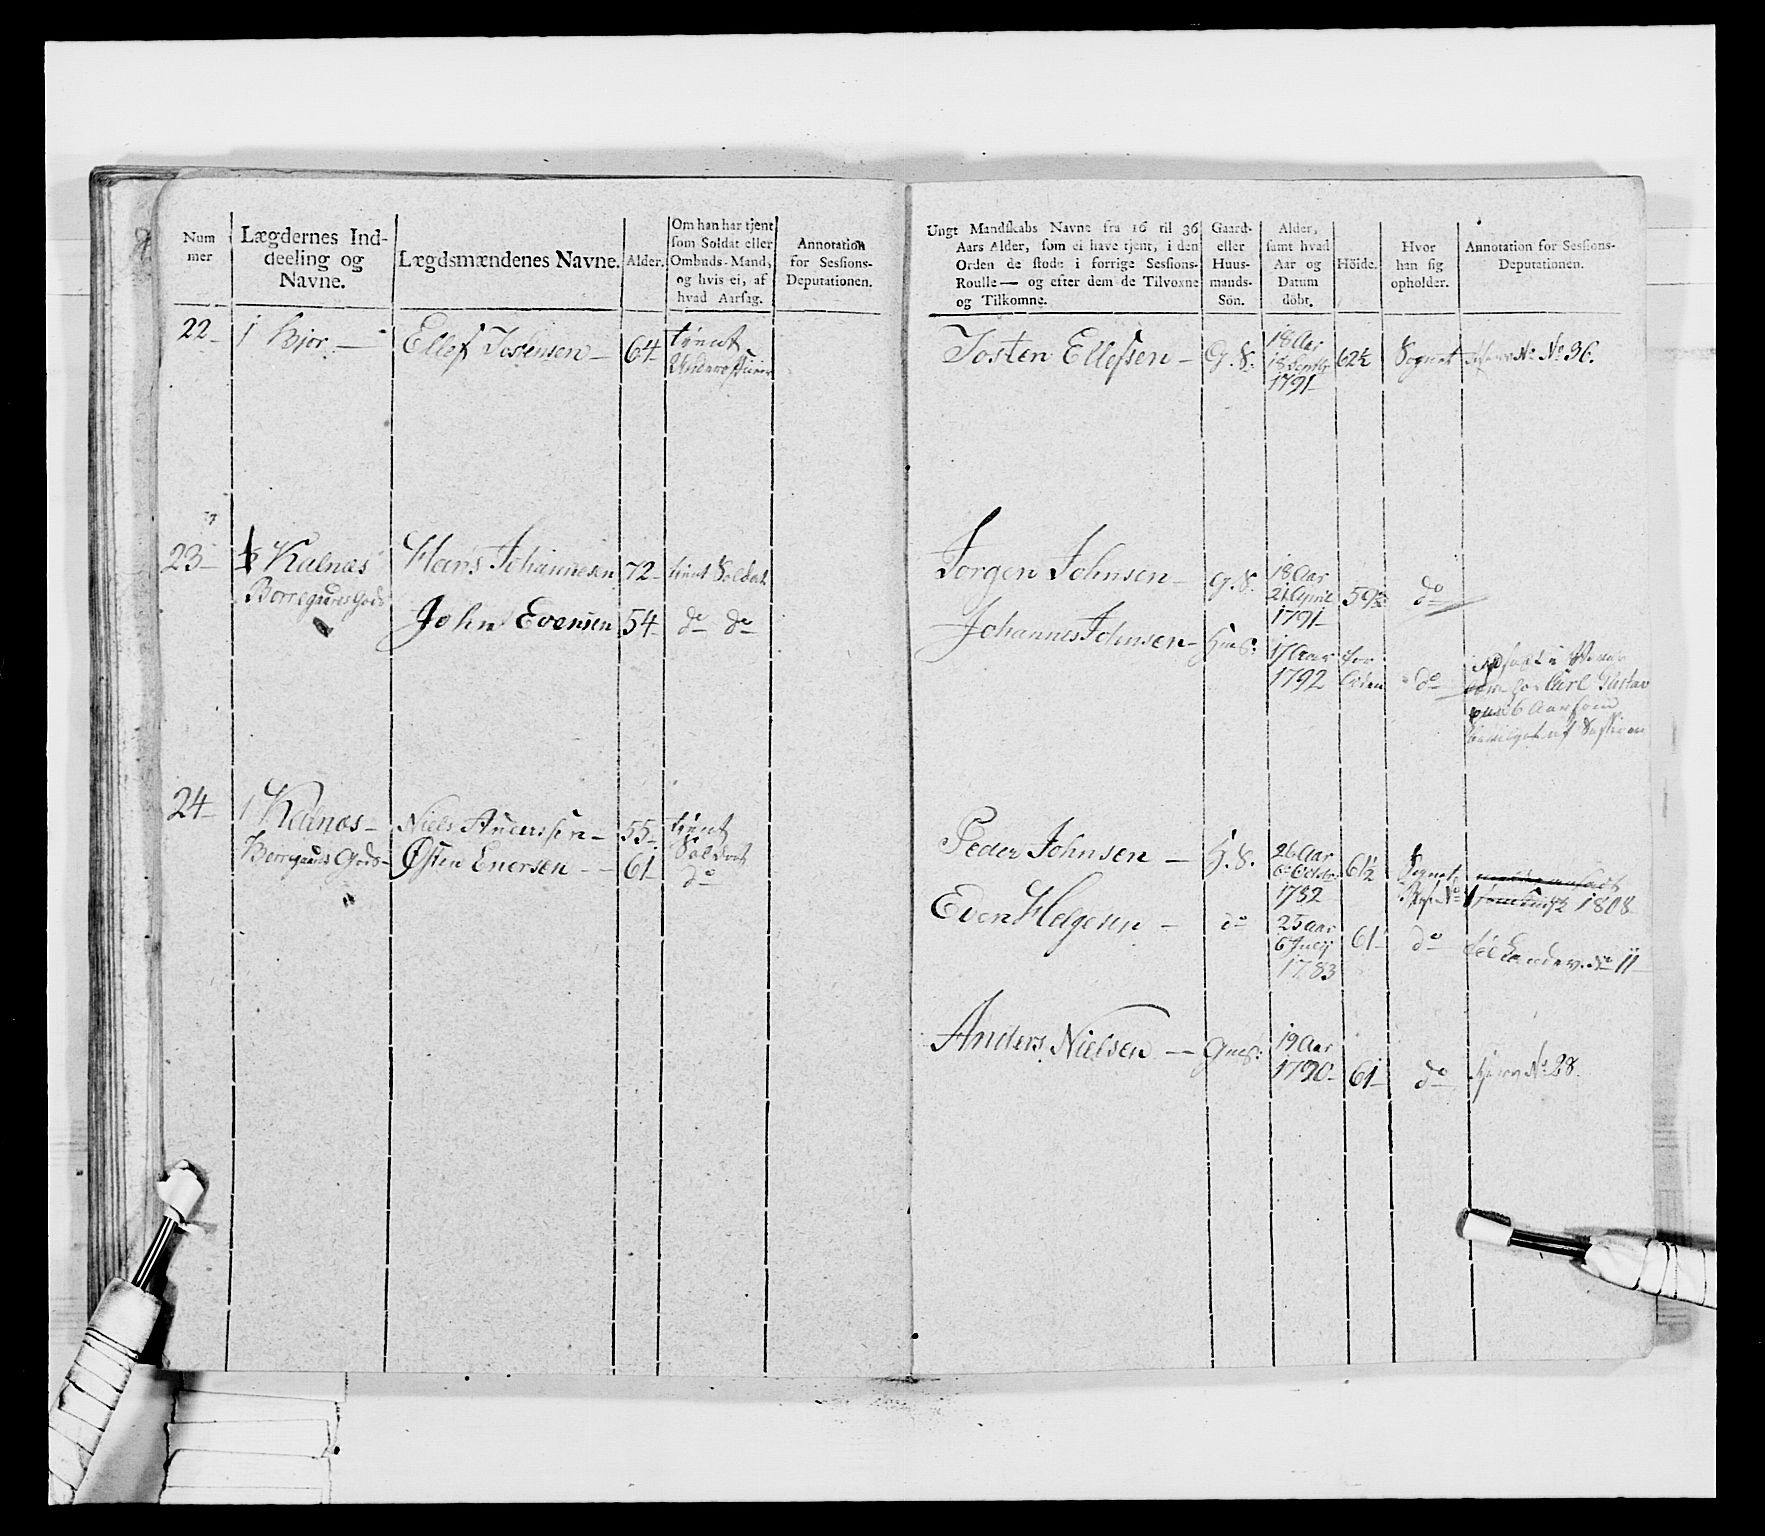 Num
mer
Lægdernes Ind-
deeling og
Navne.
Lægdsmændenes Navne.
Alder.
Om han har tjent
som Soldat eller
Ombuds-Mand,
og hvis ei, af
hvad Aarsag.
Annotation
for Sessions-
Deputationen.
22-
1 Bjor.
Ellef Jostensen -
64
tient
Underofficier
23-
½ Kalnæs
Borregaards Gods
Hans Johannesen
72-
tient Soldat
John Evensen
54-
do do
24-
1 Kalnæs-
Borregaards Gods-
Niels Anderssen -
55-
tient
Soldat
Østen Enersen - -
61-
do
Ungt Mandskabs Navne fra 16 til 36
Aars Alder, som ei have tjent, i den
Orden de stode i forrige Sessions-
Roulle — og efter dem de Tilvoxne
og Tilkomne.
Gaard-
eller
Huus-
mands-
Sön.
Alder,
samt hvad
Aar og
Datum
döbt.
Höide.
Hvor
han sig
opholder.
Annotation for Sessions-
Deputationen.
Josten Ellefsen -
G. S.
18 Aar
1791-
62½
Sognet
No 36.
Jorgen Johnsen -
G. S.
18 Aar
21 April
1791-
59½
do
Johannes Johnsen -
17 Aar
1792
for
liden
do
Carl Gustav
6 Aar som
af
Peder Johnsen -
H. S.
26 Aar
6 Octbr
1782
61½
Sognet
No 1
1808
Even Helgesen -
do
25 aar
6 July
1783
61-
do
No 11
Anders Nielsen -
19 Aar
1790-
61-
do
No 28.